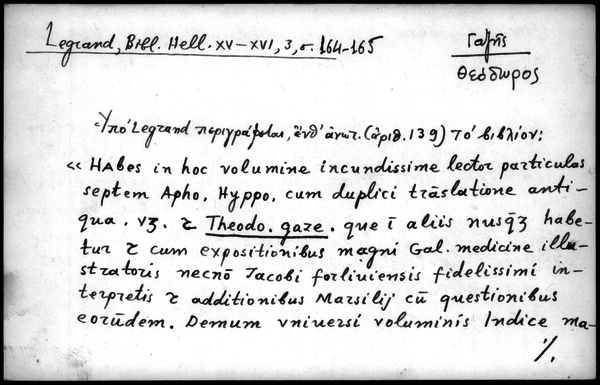 Legrand, Bibl. Hell. XV–XVI, 3, σ. 164-165
Γαζῆς
Θεόδωρος
Ὑπό Legrand περιγράφεται, ἐνθ' ἀνωτ. (ἀριθ. 139) τό βιβλίον:
« HAbes in hoc volumine iucundissime lector particulas
septem Apho. Hyppo. cum duplici trāslatione anti-
qua. vȝ. ⁊ Theodo. gaze. que ī aliis nusq̄ȝ habe-
tur ⁊ cum expositionibus magni Gal. medicine illu-
stratoris necnō Jacobi forliuiensis fidelissimi in-
terpretis ⁊ additionibus Marsilij cū questionibus
eorūdem. Demum vniuersi voluminis Indice ma-
·/.